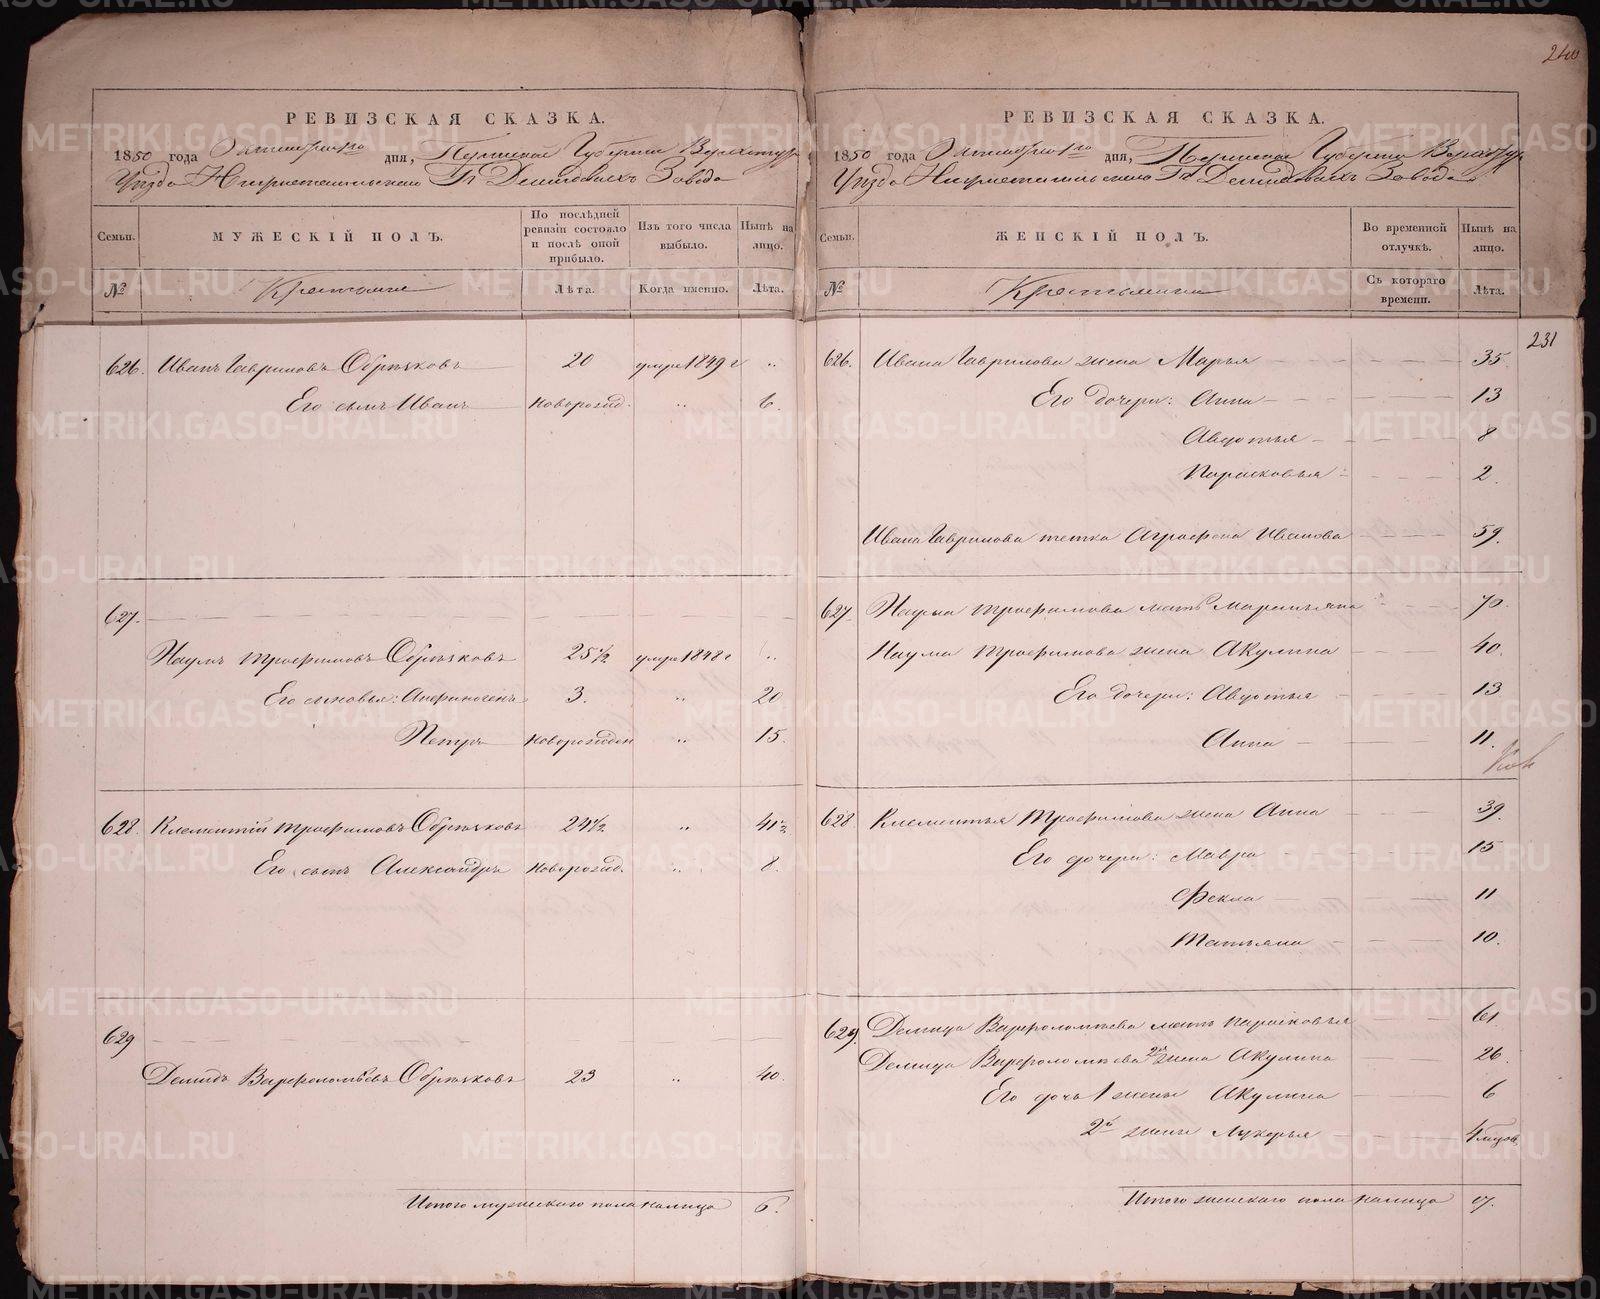 240
РЕВИЗСКАЯ СКАЗКА.
1850 года Октября 1го дня, Пермской Губернии Верхотур
Уѣзда Нижнетагильскаго Гг Демидовыхъ Завода
Семьи. МУЖЕСКІЙ ПОЛЪ. По послѣдней ревизіи состояло и послѣ оной прибыло. Изъ того числа выбыло. Нынѣ на лицо.
№ Крестьяне Лѣта. Когда именно. Лѣта.
626. Иванъ Гавриловъ Обрѣзковъ 20 умре 1849 г „
Его сынъ Иванъ новорожд. „ 6.
627.
Наумъ Трофимовъ Обрѣзковъ 25½ умре 1848 г „
Его сыновья: Анфиногенъ 3. „ 20
Петръ новорожден „ 15.
628. Клементій Трофимовъ Обрѣзковъ 24½ „ 41½
Его сынъ Александръ новорожд. „ 8.
629
Демидъ Варфоломѣевъ Обрѣзковъ 23 „ 40.
Итого мужескаго пола налицо 6.
РЕВИЗСКАЯ СКАЗКА.
1850 года Октября 1го дня, Пермской Губерніи Верхотур
Уѣзда Нижнетагильскаго Гг Демидовыхъ Завода
Семьи. ЖЕНСКІЙ ПОЛЪ. Во временной отлучкѣ. Нынѣ на лицо.
№ Крестьянки Съ котораго времени. Лѣта.
231
626. Ивана Гаврилова жена Марья 35.
Его дочери: Анна 13
Авдотья 8
Парасковья 2.
Ивана Гаврилова тетка Аграфена Иванова 59.
627. Наума Трофимова мать Маремьяна 70.
Наума Трофимова жена Акулина 40.
Его дочери: Авдотья 13
Анна 11.
628 Клементья Трофимова жена Анна 39.
Его дочери: Мавра 15
Фекла 11
Татьяна 10.
629. Демида Варфоломѣева мать Парасковья 61.
Демида Варфоломѣева 2я жена Акулина 26.
Его дочь 1 жены Акулина 6
2й жены Лукерья 4 мѣсяц.
Итого женскаго пола налицо 17.
METRIKI.GASO-URAL.RU